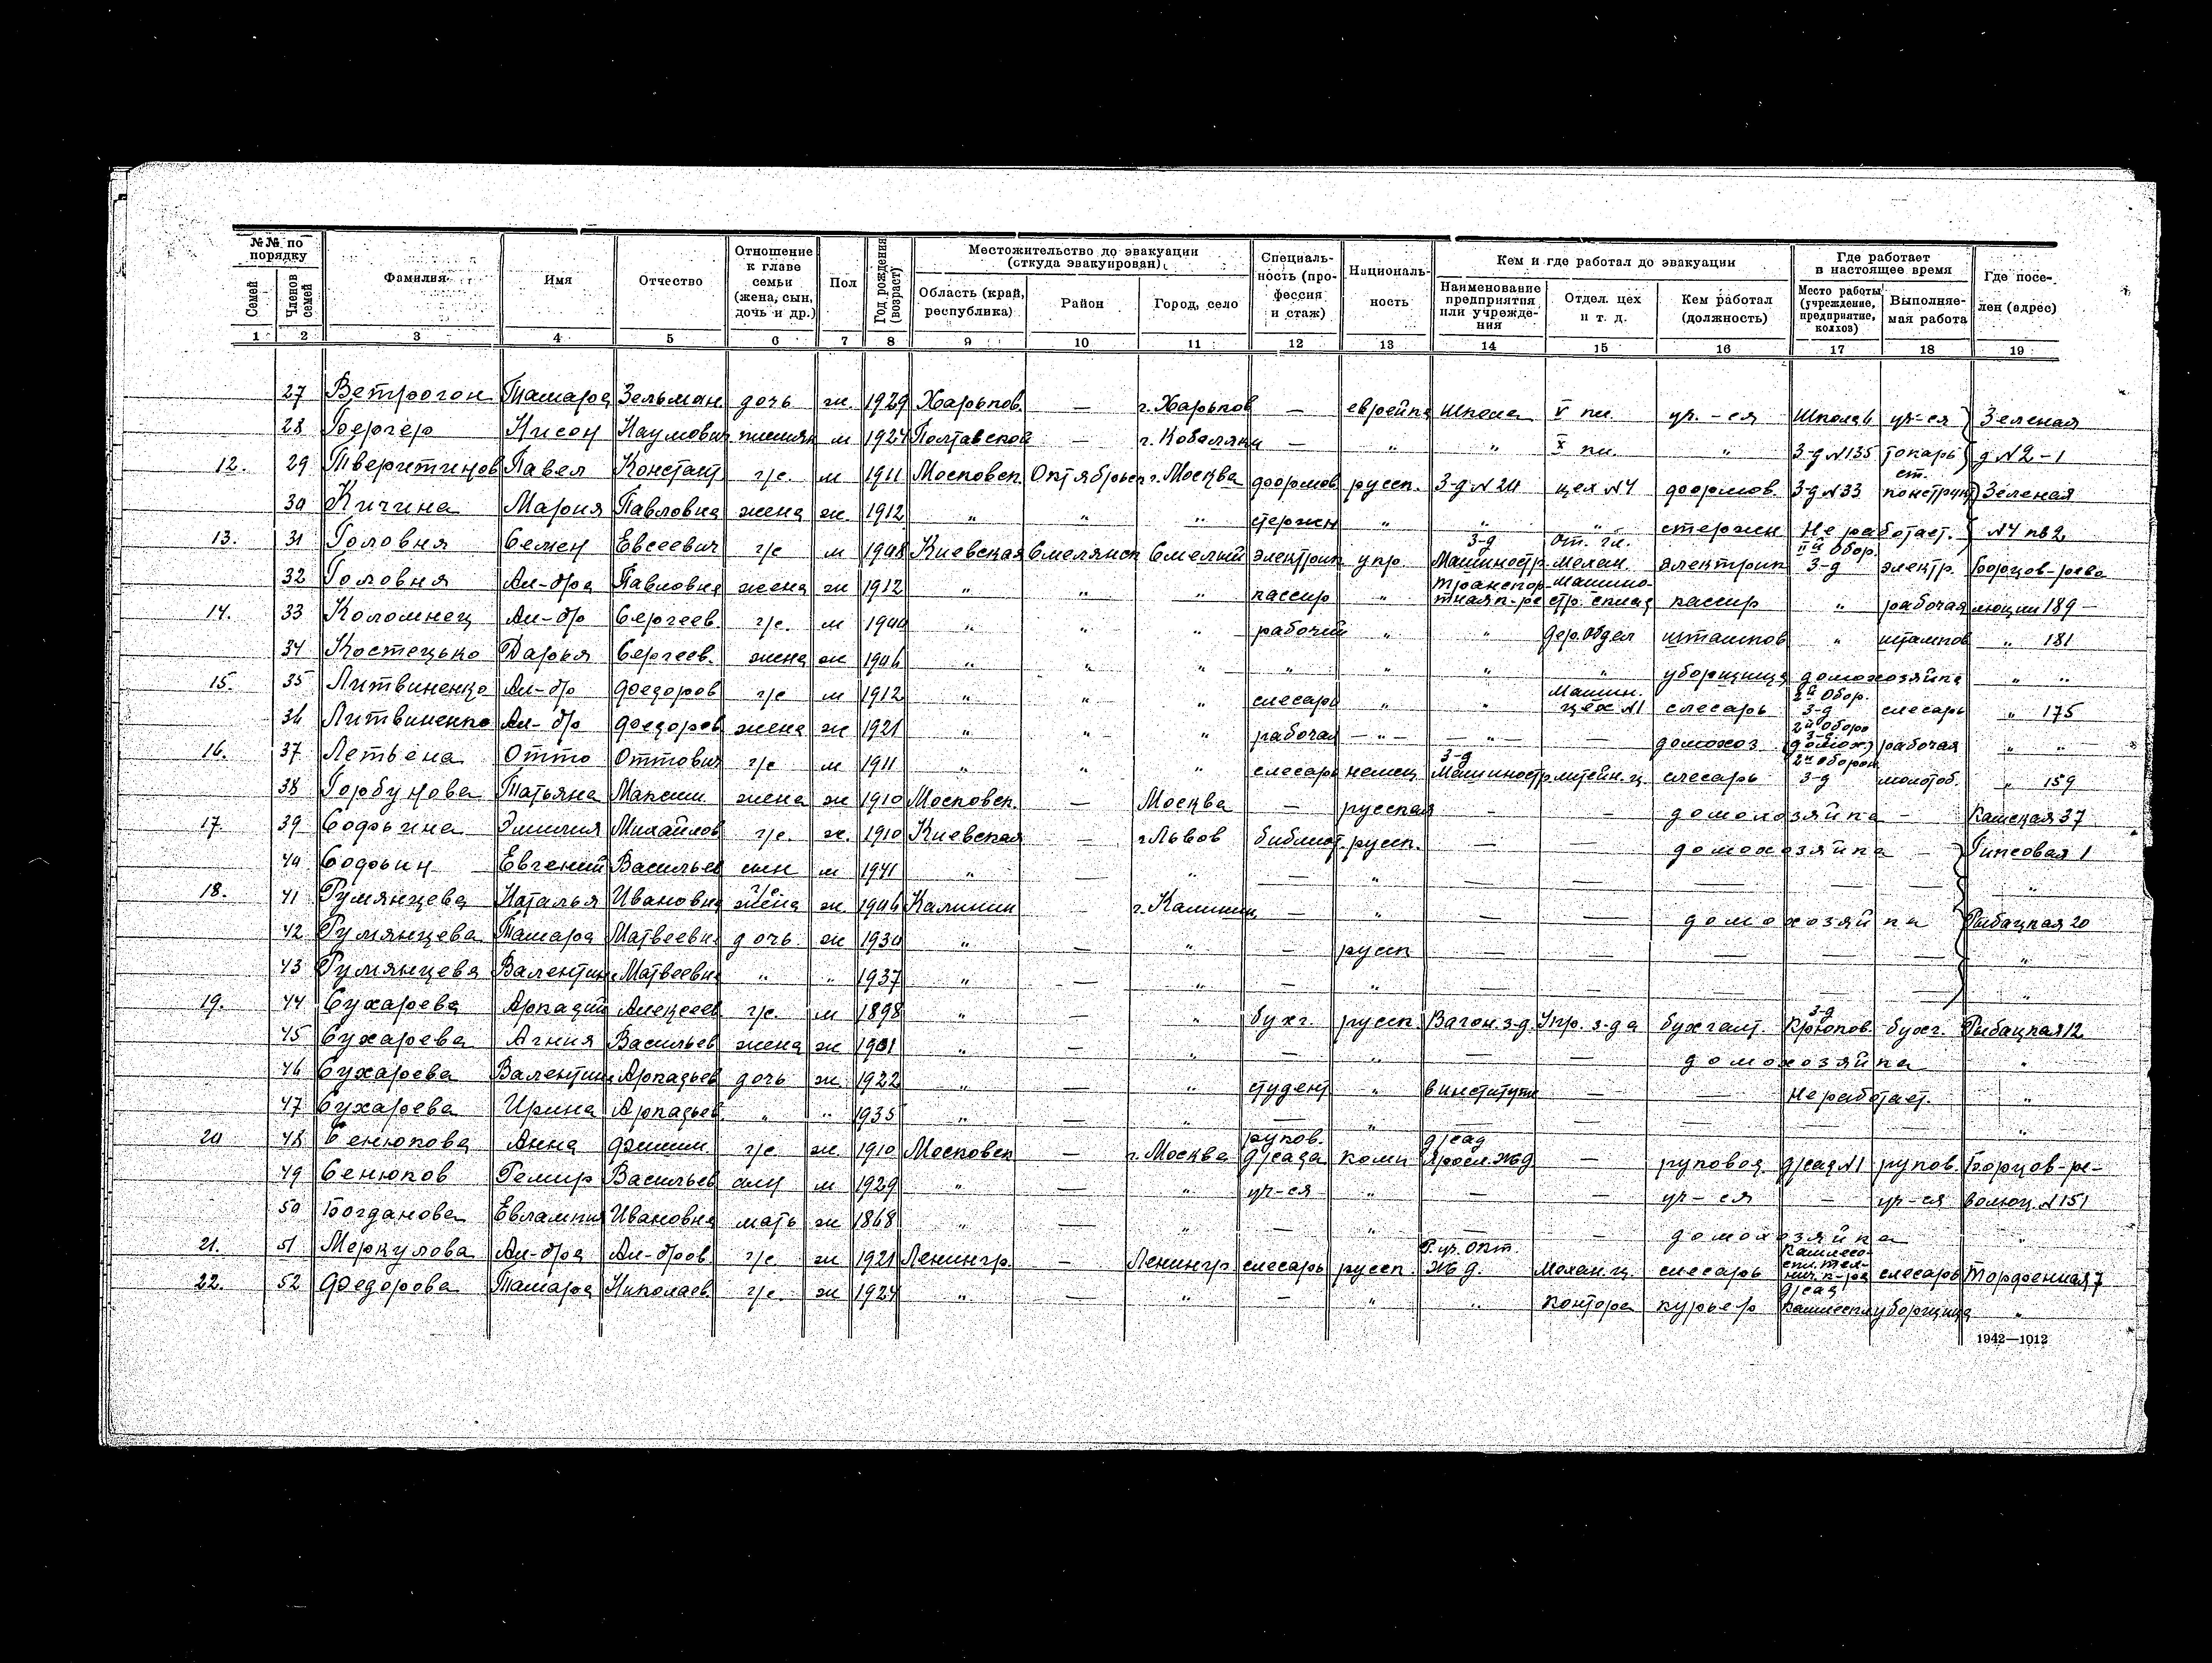 №№ по порядку
Семей
Членов семей
Фамилия
Имя
Отчество
Отношение к главе семьи (жена, сын, дочь и др.)
Пол
Год рождения (возраст)
Местожительство до эвакуации (откуда эвакуирован)
Область (край, республика)
Район
Город, село
Специальность (профессия и стаж)
Национальность
Кем и где работал до эвакуации
Наименование предприятия или учреждения
Отдел, цех и т. д.
Кем работал (должность)
Где работает в настоящее время
Место работы (учреждение, предприятие, колхоз)
Выполняемая работа
Где поселен (адрес)
1 2 3 4 5 6 7 8 9 10 11 12 13 14 15 16 17 18 19
27 Ветрогон Тамара Зельман. дочь ж. 1929 Харьков. — г. Харьков — еврейка школа V кл. уч.-ся школа уч-ся Зеленая
28 Бергер Нисон Наумович м 1924 Полтавской — г. Кобеляки — " " X кл. " з-д №135 токарь д №2-1
12. 29 Тверитинов Павел Констант г/с. м 1911 Московск. Октябрьск г. Москва формов русск. з-д №24 цех №4 формов. з-д №33 ст. конструк Зеленая
30 Кичина Мария Павловна жена ж. 1912 " " " стержен " " " стержен Не работает. №4 кв 2
13. 31 Головня Семен Евсеевич г/с м Киевская Смелянск Смелый электрик укр. з-д Машиностр. от. гл. механ. электрик 2й обор. з-д электр. Борцов-рево
32 Головня Ал-дра Павловна жена ж 1912 " " " кассир " Транспортная к-ра машиностр. склад кассир " рабочая люции 189 —
14. 33 Коломиец Ал-др Сергеев. г/с. м " " " рабочий " " дер. отдел штампов " штампов " 181
34 Костецько Дарья Сергеев. жена ж " " " " " " " уборщица домохозяйка " "
15. 35 Литвиненко Ал-др Федоров г/с м 1912 " " " слесарь " " Машин. цех №1 слесарь 2й Обор. з-д слесарь " 175
36 Литвиненко Ал-др Федоров жена ж 1921 " " " рабочая — " — — " — — домохоз. 2й оборо з-д (домох.) рабочая " "
16. 37 Летьена Отто Оттович г/с м 1911 " " " слесарь немец з-д Машиностр. литейн. ц. слесарь 2й оборон з-д молотоб. " 159
38 Горбунова Татьяна Максим. жена ж 1910 Московск. — Москва — русская — — домохозяйка — Камская 37
17. 39 Софьина Эмилия Михайлов г/с. ж. 1910 Киевская — г. Львов библиот. русск. — — домохозяйка — Гипсовая 1
40 Софьин Евгений Васильев сын м 1941 " — " — " — — — — — "
18. 41 Румянцева Наталья Ивановна г/с жена ж. Калинин — г. Калинин — " — — домохозяйка Рыбацкая 20
42 Румянцева Тамара Матвеевн. дочь ж 1930 " — " — русск — — — — — "
43 Румянцева Валентин. Матвеевн " " 1937 " — " — " — — — — — "
19. 44 Сухарева Аркадий Алексеев г/с. м 1898 " — " бухг. русск. Вагон. з-д. Упр. з-да бухгалт. з-д Крюков. бухг. Рыбацкая 12
45 Сухарева Агния Васильев жена ж 1901 " — " — " — — домохозяйка "
46 Сухарева Валентин. Аркадьев дочь ж. 1922 " — " студент " в институте — — Не работает. "
47 Сухарева Ирина Аркадьев " " 1935 " — " — " — — — — — "
20 48 Сенюкова Анна Филип. г/с ж. 1910 Московск — г. Москва руков. д/сада коми д/сад Яросл. жд — руковод. д/сад №1 руков. Борцов-ре-
49 Сенюков Гелир Васильев сын м 1929 " — " уч-ся " — — уч-ся — уч-ся волюц. №151
50 Богданова Евлампия Ивановна мать ж 1868 " — " — " — — домохозяйка "
21. 51 Меркулова Ал-дра Ал-дров г/с. ж 1921 Ленингр. — Ленингр. слесарь русск. жд. Механ. ц. слесарь слесарь Торфенная 7
22. 52 Федорова Тамара Николаев. г/с. ж 1924 " — " — " " Контора курьер д/сад уборщица "
1942—1012